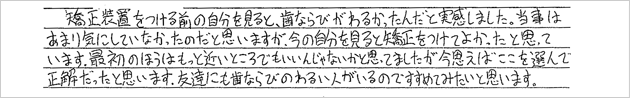 矯正装置をつける前の自分を見ると、歯ならびがわるかったんだと実感しました。当事は
あまり気にしていなかったのだと思いますが、今の自分を見ると矯正をつけてよかったと思って
います。最初のほうはもっと近いところでもいいんじゃないかと思ってましたが今思えばここを選んで
正解だったと思います。友達にも歯ならびのわるい人がいるのですすめてみたいと思います。